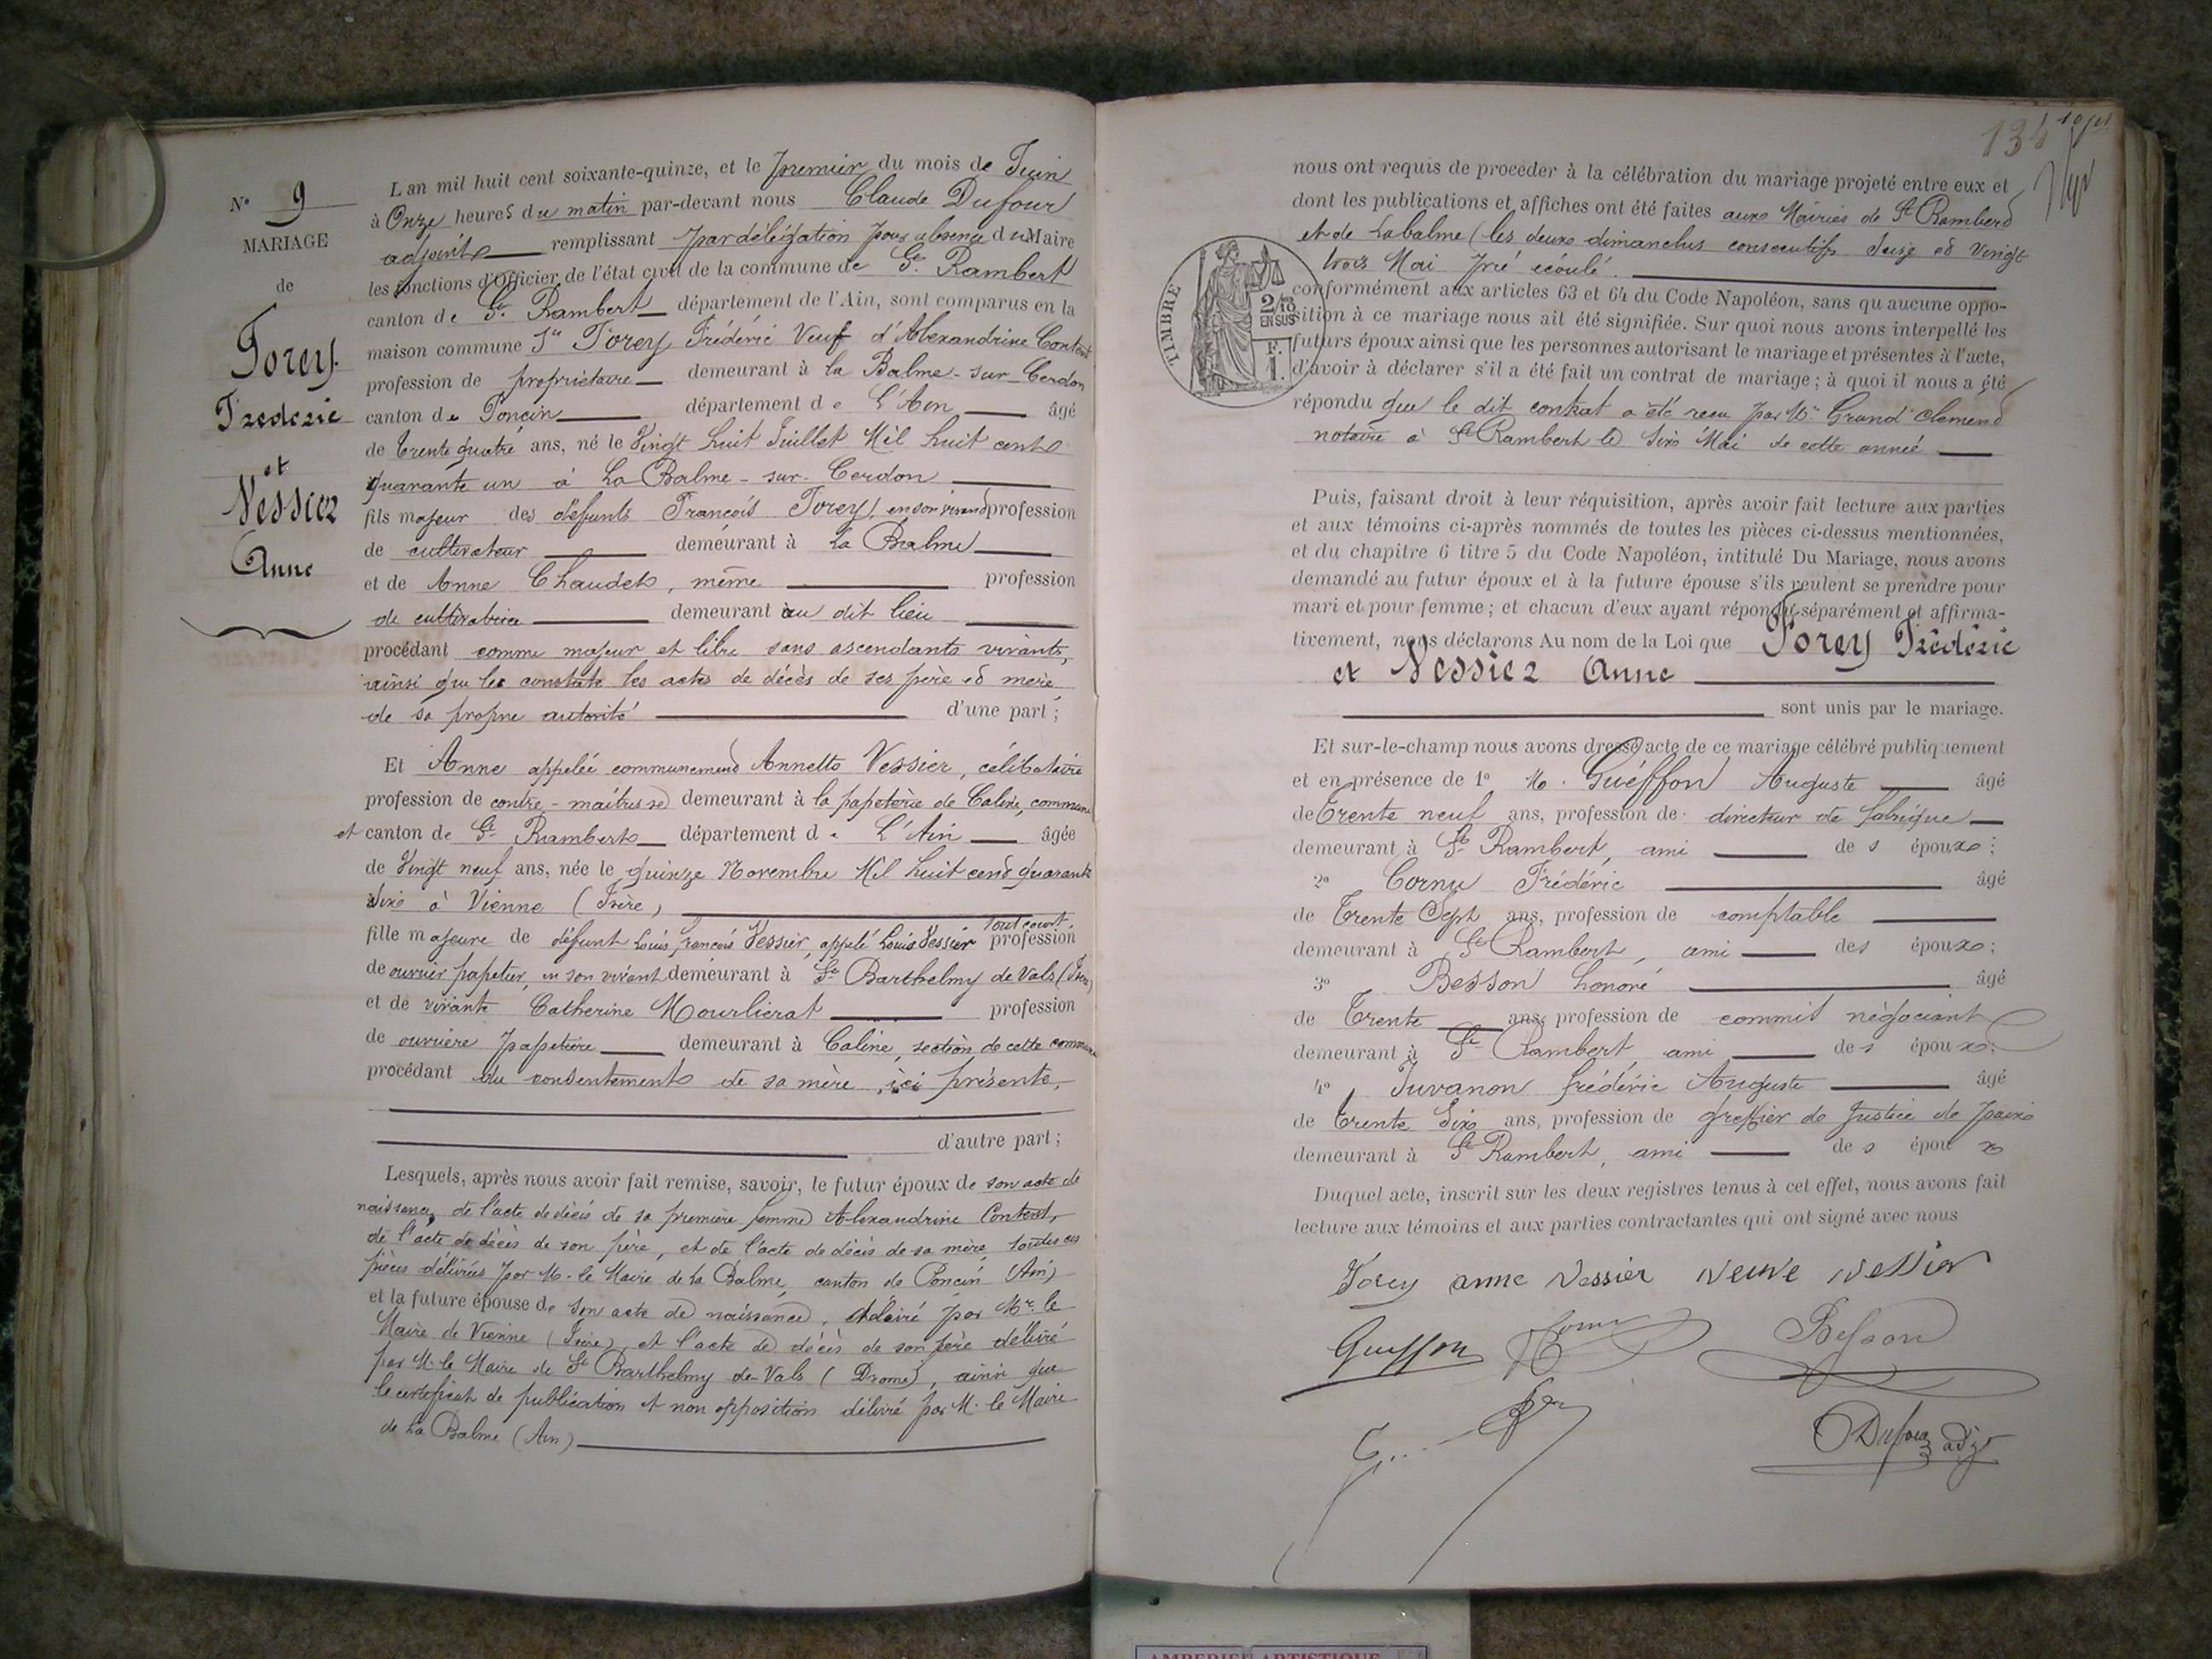 N° 9
MARIAGE
de
Forey
Frédéric
et
Vessier
Anne
L'an mil huit cent soixante-quinze, et le premier du mois de Juin
à Onze heures du matin par-devant nous Claude Dufour
adjoint remplissant par délégation pour absence du Maire
les fonctions d'Officier de l'état civil de la commune de St Rambert
canton de St Rambert département de l'Ain, sont comparus en la
maison commune Sr Forey Frédéric Veuf d'Alexandrine Contest
profession de propriétaire demeurant à la Balme-sur-Cerdon
canton de Poncin département de L'Ain âgé
de trente quatre ans, né le Vingt huit Juillet Mil huit cent
quarante un à La Balme-sur-Cerdon
fils majeur des défunts François Forey, en son vivant profession
de cultivateur demeurant à La Balme
et de Anne Chaudet, même profession
de cultivatrice demeurant au dit lieu
procédant comme majeur et libre sans ascendants vivants,
ainsi que les constate les actes de décès de ses père et mère
de sa propre autorité d'une part;
Et Anne appelée communement Annette Vessier, célibataire
profession de contre-maitresse demeurant à la papeterie de Caline, commune
et canton de St Rambert département de L'Ain âgée
de Vingt neuf ans, née le quinze Novembre Mil huit cent quarante
Six à Vienne (Isère)
fille majeure de défunt Louis françois Vessier, appelé Louis Vessier tout court, profession
de ouvrier papetier, en son vivant demeurant à St Barthelmy de Vals (Isère)
et de vivante Catherine Mourlierat profession
de ouvrière papetière demeurant à Caline, section de cette commune
procédant du consentement de sa mère, ici présente,
d'autre part;
Lesquels, après nous avoir fait remise, savoir, le futur époux de son acte de
naissance, de l'acte de décès de sa première femme Alexandrine Contest,
de l'acte de décès de son père, et de l'acte de décès de sa mère, toutes ces
pièces délivrées par M. le Maire de La Balme, canton de Poncin (Ain)
et la future épouse de son acte de naissance, délivré par Mr. le
Maire de Vienne (Isère), et l'acte de décès de son père délivré
par M. le Maire de St Barthelmy de Vals (Drome), ainsi que
le certificat de publication et non opposition délivré par M. le Maire
de La Balme (Ain)
134
nous ont requis de proceder à la célébration du mariage projeté entre eux et
dont les publications et affiches ont été faites aux Mairies de St Rambert
et de Labalme (les deux dimanches consecutifs Seize et Vingt
trois Mai pré écoulé.
TIMBRE
2/10
EN SUS
F.
1.
conformément aux articles 63 et 64 du Code Napoléon, sans qu'aucune oppo-
sition à ce mariage nous ait été signifiée. Sur quoi nous avons interpellé les
futurs époux ainsi que les personnes autorisant le mariage et présentes à l'acte,
d'avoir à déclarer s'il a été fait un contrat de mariage; à quoi il nous a été
répondu que le dit contrat a été recu par Me Grand Clement
notaire à St Rambert le Six Mai de cette année
Puis, faisant droit à leur réquisition, après avoir fait lecture aux parties
et aux témoins ci-après nommés de toutes les pièces ci-dessus mentionnées,
et du chapitre 6 titre 5 du Code Napoléon, intitulé Du Mariage, nous avons
demandé au futur époux et à la future épouse s'ils veulent se prendre pour
mari et pour femme; et chacun d'eux ayant répondu séparément et affirma-
tivement, nous déclarons Au nom de la Loi que Forey Frédéric
et Vessier Anne
sont unis par le mariage.
Et sur-le-champ nous avons dressé acte de ce mariage célébré publiquement
et en présence de 1° M. Guéffon Auguste âgé
de Trente neuf ans, profession de directeur de fabrique
demeurant à St Rambert, ami des époux;
2° Cornu Frédéric âgé
de Trente Sept ans, profession de comptable
demeurant à St Rambert, ami des époux;
3° Besson honoré âgé
de Trente ans, profession de commis négociant
demeurant à St Rambert, ami des époux;
4° Juvanon frédéric Auguste âgé
de trente Six ans, profession de greffier de Justice de paix
demeurant à St Rambert, ami des époux
Duquel acte, inscrit sur les deux registres tenus à cet effet, nous avons fait
lecture aux témoins et aux parties contractantes qui ont signé avec nous
Forey anne Vessier veuve vessier
Gueffon Cornu Besson
Dufour adjt
AMBERIEU ARTISTIQUE